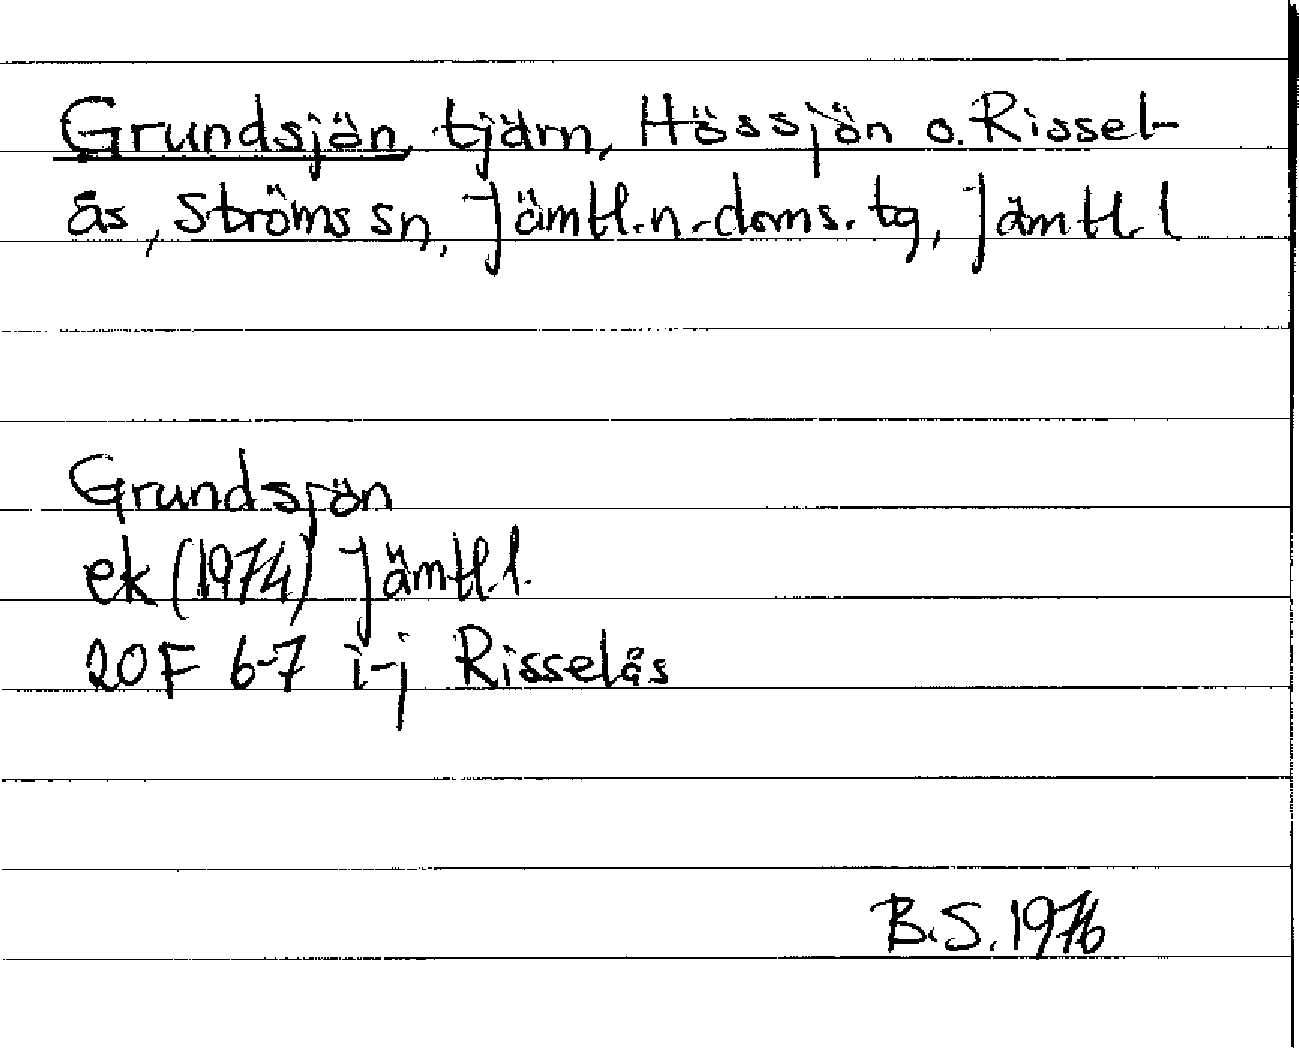 Grundsjön, tjärn, Hössjön o. Rissel-
ås, Ströms sn, Jämtl. n. doms. tg, Jämtl. l
Grundsjön
ek (1974) Jämtl. l.
20F 6-7 i-j Risselås
B.S. 1976